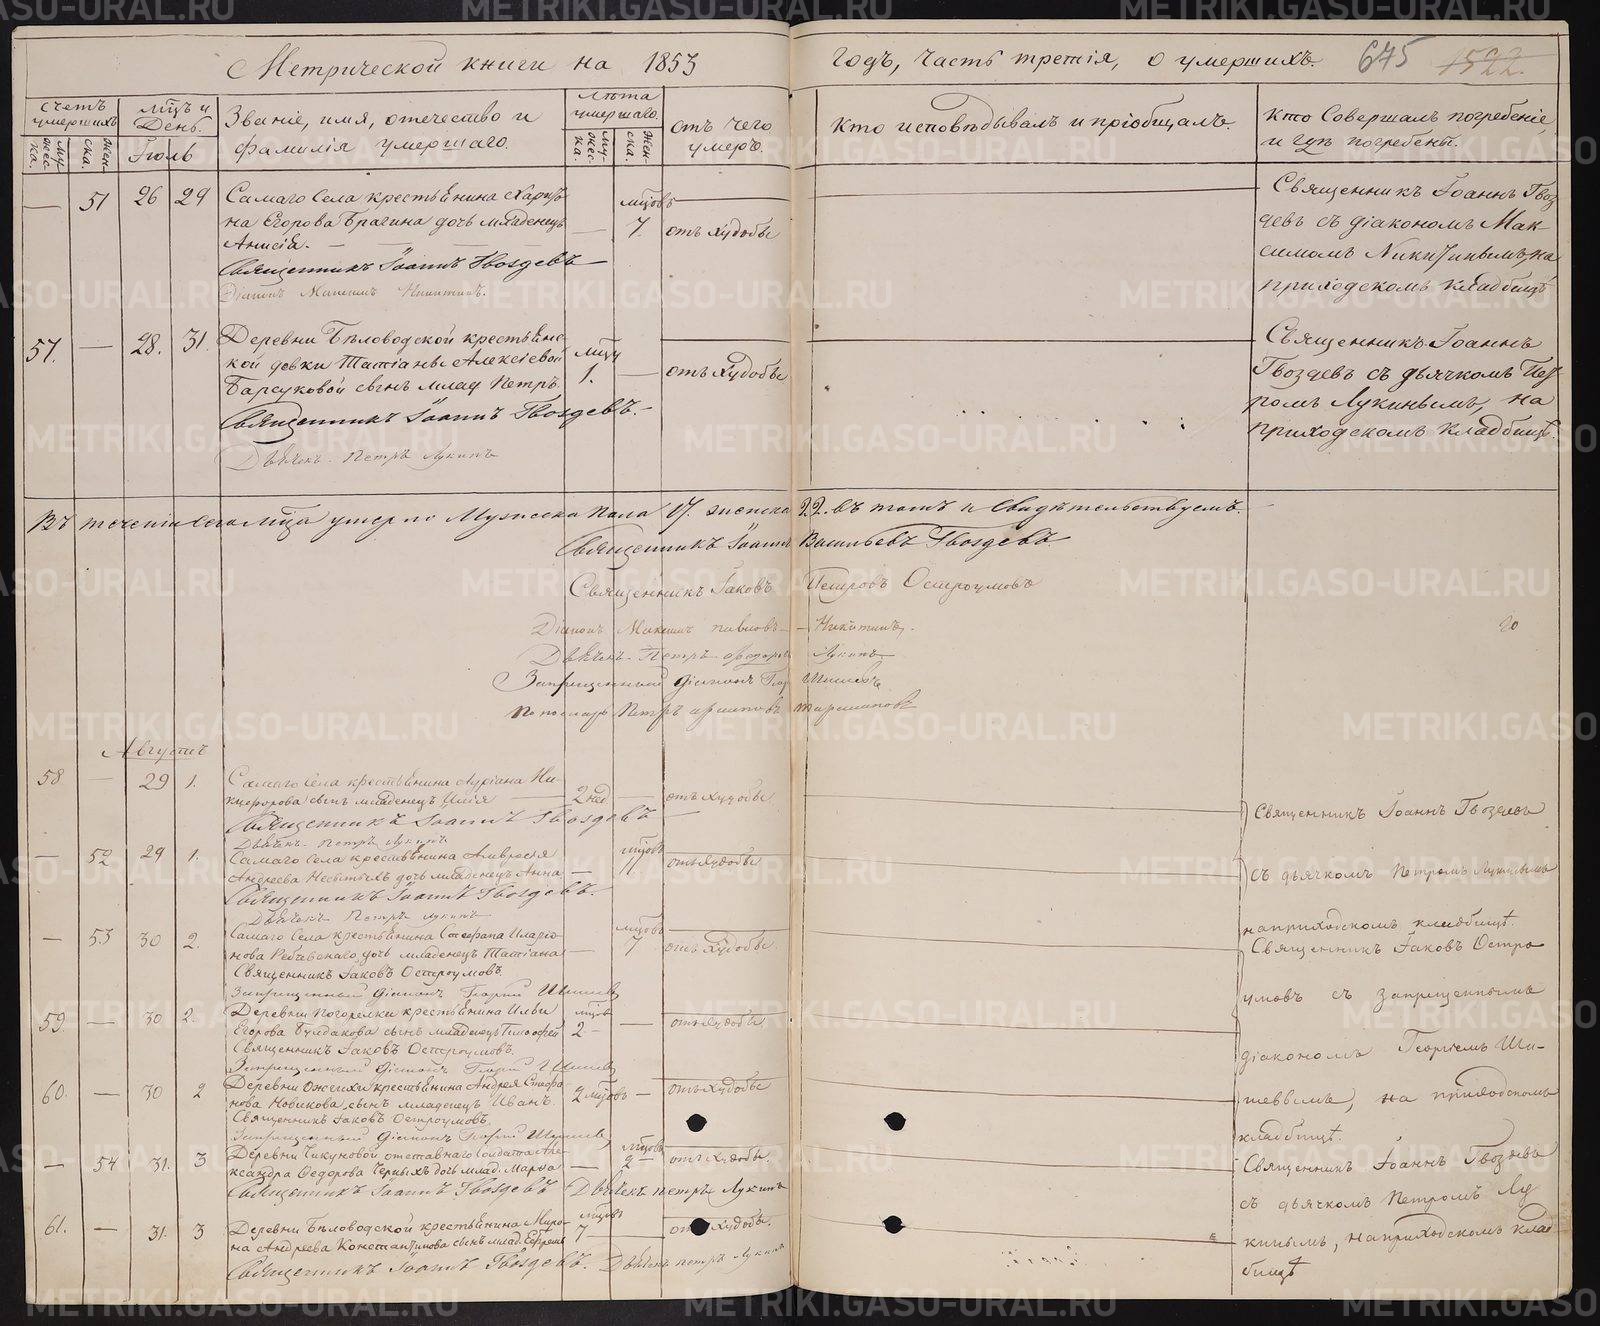 Метрической книги на 1853 годъ, часть третія, о умершихъ. 675 1522
счетъ умершихъ
мужеска.
женска.
мц҃ъ и День.
Іюль
Званіе, имя, отечество и
фамилія умершаго.
Лѣта умершаго.
мужеска
женска.
отъ чего
умеръ.
Кто исповѣдывалъ и пріобщалъ.
Кто Совершалъ погребеніе
и гдѣ погребены.
— 51 26 29
Самаго Села крестьянина
на Егорова Брагина дочь младенецъ
Анисія. —
Священникъ Іоаннъ Гвоздевъ
Діаконъ Максимъ Никитинъ.
мц҃овъ
7.
отъ худобы
Священникъ Іоаннъ Гвоз
девъ съ діакономъ Мак-
симомъ Никитинымъ, на
приходскомъ кладбищѣ
57. — 28. 31.
Деревни Бѣловодской крестьянс
кой девки Татіаны Алексіевой
Барсуковой сынъ млад. Петръ.
Священникъ Іоаннъ Гвоздевъ.
Дьячекъ Петръ Лукинъ
мц҃у
1.
отъ худобы
Священникъ Іоаннъ
Гвоздевъ съ дьячкомъ Пет-
ромъ Лукинымъ, на
приходскомъ кладбищѣ.
Въ теченіи сего мц҃а умерло Мужеска пола 17. женска 22. въ томъ и Свидѣтельствуемъ.
Священникъ Іоаннъ Васильевъ Гвоздевъ
Священникъ Іаковъ Петровъ Остроумовъ
20
Діаконъ Максимъ павловъ Никитинъ.
Дьячекъ Петръ Лукинъ
Запрещенный діаконъ Шишевъ
Пономарь Петръ
Августъ
58 — 29 1.
Самаго Села крестьянина Адріана Ни-
кифорова сынъ младенецъ Илія
2 нед
отъ худобы
Священникъ Іоаннъ Гвоздевъ
Священникъ Іоаннъ Гвоздевъ
Дьячекъ Петръ Лукинъ
— 52 29 1.
Самаго Села крестьянина Амвросія
Андреева дочь младенецъ Анна
мц҃овъ
11
отъ худобы
съ дьячкомъ Петромъ Лукинымъ
Священникъ Іоаннъ Гвоздевъ.
Дьячекъ Петръ Лукинъ
на приходскомъ кладбищѣ.
— 53 30 2.
Самаго Села крестьянина Стефана Иларіо-
нова дочь младенецъ Татіана
мц҃овъ
7
отъ худобы.
Священникъ Іаковъ Остро
Священникъ Іаковъ Остроумовъ.
Запрещенный діаконъ Георгій Шишевъ
умовъ съ Запрещеннымъ
59. — 30 2.
Деревни Погорелки крестьянина Ильи
Егорова Булдакова сынъ младенецъ Тимофей
мц҃овъ
2 —
отъ худобы.
Священникъ Іаковъ Остроумовъ.
Запрещенный діаконъ Георгій Шишевъ
діакономъ Георгіемъ Ши-
60. — 30 2
Деревни Ожгихи крестьянина Андрея Стефа-
нова Новикова, сынъ младенецъ Иванъ.
2 мц҃овъ —
отъ худобы
шевымъ, на приходскомъ
Священникъ Іаковъ Остроумовъ.
Запрещенный діаконъ Георгій Шишевъ
кладбищѣ.
— 54 31. 3
Деревни Чикуновой отставнаго Солдата Але-
ксандра Федорова Черныхъ дочь млад. Марѳа
мц҃овъ
2 —
отъ худобы.
Священникъ Іоаннъ Гвоздевъ
Священникъ Іоаннъ Гвоздевъ Дьячекъ петръ Лукинъ
съ дьячкомъ Петромъ Лу
61. — 31. 3
Деревни Бѣловодской крестьянина Миро-
на Андреева Константинова сынъ млад. Ефремъ
мц҃овъ
7
отъ худобы.
кинымъ, на приходскомъ клад
Священникъ Іоаннъ Гвоздевъ. Дьячекъ петръ Лукинъ
бищѣ
METRIKI.GASO-URAL.RU